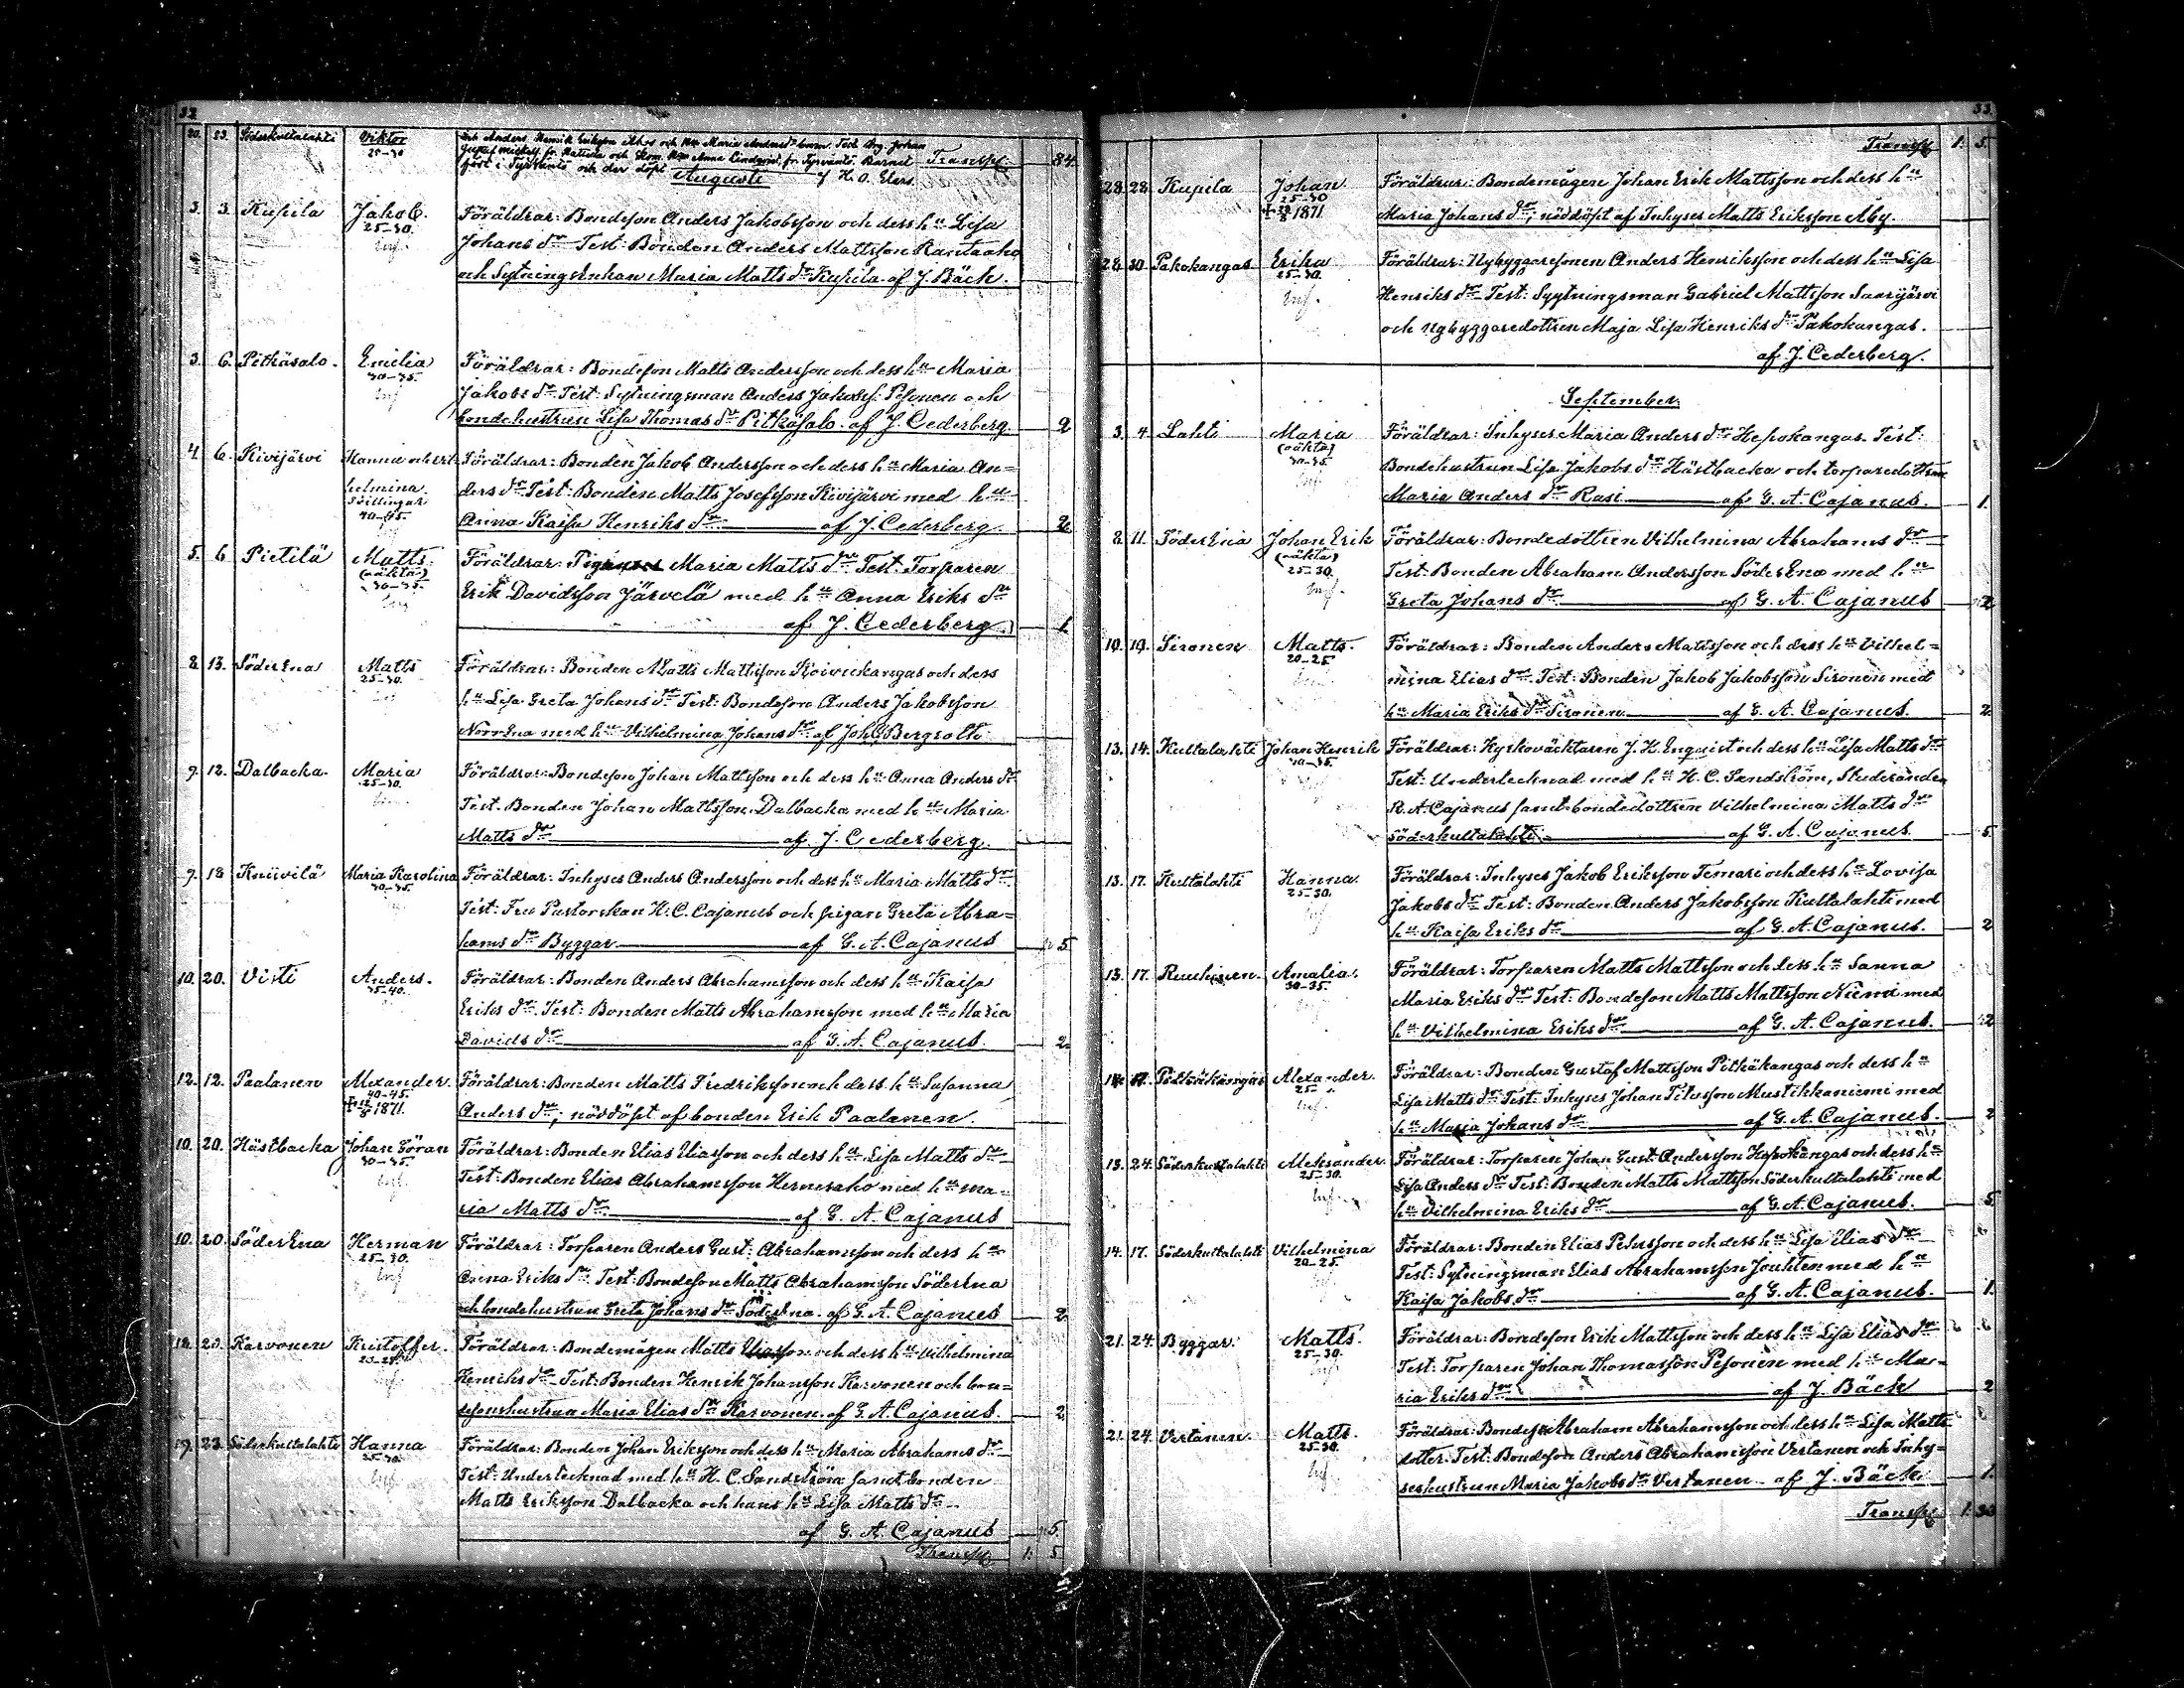 32
20. 23. Söderkultalahti Viktor 25-30
Anders Henrik Eriksson och Maria Anders dr Test. Johan
Gustaf och Anna Lindqvist fr. Tyrväntö. Barnet Transp. 84.
född i Tyrväntö och der döpt af H. O. Elers.
Augusti
3. 3. Kupila Jakob. 25-30. Föräldrar: Bondeson Anders Jakobsson och dess hu Lisa
Johans dr Test: Bonden Anders Mattsson Rantaaho
och Sytningsenkan Maria Matts dr Kupila. af J. Bäck.
3. 6. Pitkäsalo. Emilia 30-35. Inf. Föräldrar: Bondeson Matts Andersson och dess hu Maria
Jakobs dr Test: Sytningsman Anders Jakobss. Pesonen och
bondehustrun Lisa Thomas dr Pitkäsalo. af J. Cederberg. 2
4. 6. Kivijärvi Hanna och Vil-
helmina. tvillingar 40-45. Föräldrar: Bonden Jakob Andersson och dess hu Maria An=
ders dr Test: Bonden Matts Josefsson Kivijärvi med hu
Anna Kaisa Henriks dr af J. Cederberg 2
5. 6 Pietilä Matts. (oäkta) 30-35. Inf Föräldrar: Pigan Maria Matts dr Test. Torparen
Erik Davidsson Järvelä med hu Anna Eriks dr
af J. Cederberg. 1
8. 13. SöderEna Matts 25-30. Föräldrar: Bonden Matts Mattsson Koivukangas och dess
hu Lisa Greta Johans dr Test: Bondeson Anders Jakobsson
NorrEna med hu Vilhelmina Johans dr af Joh. Bergroth
9. 12. Dalbacka. Maria 25-30. Föräldrar: Bondeson Johan Mattsson och dess hu Anna Anders dr
Test. Bonden Johan Mattsson Dalbacka med hu Maria
Matts dr af J. Cederberg.
9. 18 Kniivilä Maria Karolina 30-35. Föräldrar: Inhyses Anders Andersson och dess hu Maria Matts dr
Test: Fru Pastorskan H. C. Cajanus och pigan Greta Abra=
hams dr Byggar af G. A. Cajanus 5
10. 20. Visti Anders. 35-40. Föräldrar: Bonden Anders Abrahamsson och dess hu Kaisa
Eriks dr Test: Bonden Matts Abrahamsson med hu Maria
Davids dr af G. A. Cajanus. 2
12. 12. Paalanen Alexander. 40-45. + 12/8 1871. Föräldrar: Bonden Matts Fredriksson och dess hu Susanna
Anders dr; nöddöpt af bonden Erik Paalanen.
10. 20. Hästbacka Johan Göran 30-35. Inf. Föräldrar: Bonden Elias Eliasson och dess hu Lisa Matts dr
Test: Bonden Elias Abrahamsson Hernesaho med hu Ma=
ria Matts dr af G. A. Cajanus
10. 20. SöderEna Herman 25-30. Inf Föräldrar: Torparen Anders Gust: Abrahamsson och dess hu
Anna Eriks dr Test: Bondeson Matts Abrahamsson SöderEna
och bondehustrun Greta Johans dr SöderEna. af G. A. Cajanus 2
18. 20. Karvonen Kristoffer. Inf. Föräldrar: Bondemågen Matts Eliasson och dess hu Vilhelmina
Henriks dr Test: Bonden Henrik Johansson Karvonen och bon=
desonshustrun Maria Elias dr Karvonen. af G. A. Cajanus. 2
19. 23. Söderkultalahti Hanna Inf Föräldrar: Bonden Johan Eriksson och dess hu Maria Abrahams dr
Test: Undertecknad med hu H. C. Sandström samt bonden
Matts Eriksson Dalbacka och hans hu Lisa Matts dr
af G. A. Cajanus 5.
Transp. 1: 5
33.
Transp. 1: 5.
28. 28. Kupila Johan 25-30 + 28/8 1871 Föräldrar: Bondemågen Johan Erik Mattsson och dess hu
Maria Johans dr; nöddöpt af Inhyses Matts Eriksson Åby.
28. 30 Pakokangas Erika 25-30. Inf. Föräldrar: Nybyggaresonen Anders Henriksson och dess hu Lisa
Henriks dr Test: Sytningsman Gabriel Mattsson Saarijärvi
och nybyggaredottren Maja Lisa Henriks dr Pakokangas.
af J. Cederberg.
September.
3. 4 Lahti Maria (oäkta) 30-35. Inf Föräldrar: Inhyses Maria Anders dr Hepokangas. Test:
Bondehustrun Lisa Jakobs dr Hästbacka och torparedottren
Maria Anders dr Rasi af G. A. Cajanus. 1.
8. 11. SöderEna Johan Erik (oäkta) 25-30. Inf. Föräldrar: Bondedottren Vilhelmina Abrahams dr
Test: Bonden Abraham Andersson SöderEna med hu
Greta Johans dr af G. A. Cajanus 2
10. 19. Sironen Matts. 20-25. Föräldrar: Bonden Anders Mattsson och dess hu Vilhel=
mina Elias dr Test: Bonden Jakob Jakobsson Sironen med
hu Maria Eriks dr Sironen af G. A. Cajanus. 2.
13. 14. Kultalahti Johan Henrik Föräldrar: Kyrkoväktaren J. H. Enqvist och dess hu Lisa Matts dr
Test: Undertecknad med hu H. C. Sandström, Studeranden
R. A. Cajanus samt bondedottren Vilhelmina Matts dr
Söderkultalahti af G. A. Cajanus. 5
13. 17. Kultalahti Hanna. 25-30. Inf Föräldrar: Inhyses Jakob Eriksson Temari och dess hu Lovisa
Jakobs dr Test: Bonden Anders Jakobsson Kultalahti med
hu Kaisa Eriks dr af G. A. Cajanus. 2
13. 17. Ruuhinen Amalia. 30-35. Föräldrar: Torparen Matts Mattsson och dess hu Sanna
Maria Eriks dr Test: Bondeson Matts Mattsson Niemi med
hu Vilhelmina Eriks dr af G. A. Cajanus. 2
14. 17. Pitkäkangas Alexander. 25 Inf. Föräldrar: Bonden Gustaf Mattsson Pitkäkangas och dess hu
Lisa Matts dr Test: Inhyses Johan Titusson Mustikkaniemi med
hu Maria Johans dr af G. A. Cajanus. 2
13. 24. Söderkultalahti Aleksander. 25-30. Inf. Föräldrar: Torparen Johan Gust: Andersson Hepokangas och dess hu
Lisa Anders dr Test: Bonden Matts Mattsson Söderkultalahti med
hu Vilhelmina Eriks dr af G. A. Cajanus. 5
14. 17. Söderkultalahti Vilhelmina 20-25. Föräldrar: Bonden Elias Petersson och dess hu Lisa Elias dr
Test: Sytningsman Elias Abrahamsson Jouhten med hu
Kaisa Jakobs dr af G. A. Cajanus. 1.
21. 24. Byggar. Matts. 25-30. Inf Föräldrar: Bondeson Erik Mattsson och dess hu Lisa Elias dr
Test: Torparen Johan Thomasson Pesonen med hu Ma=
ria Eriks dr af J. Bäck 2
21. 24. Vertanen. Matts. 25-30. Inf Föräldrar: Bondeson Abraham Abrahamsson och dess hu Lisa Matts
dotter. Test: Bondeson Anders Abrahamsson Vertanen och Inhy=
seshustrun Maria Jakobs dr Vertanen af J. Bäck 1.
Transp. 1: 30